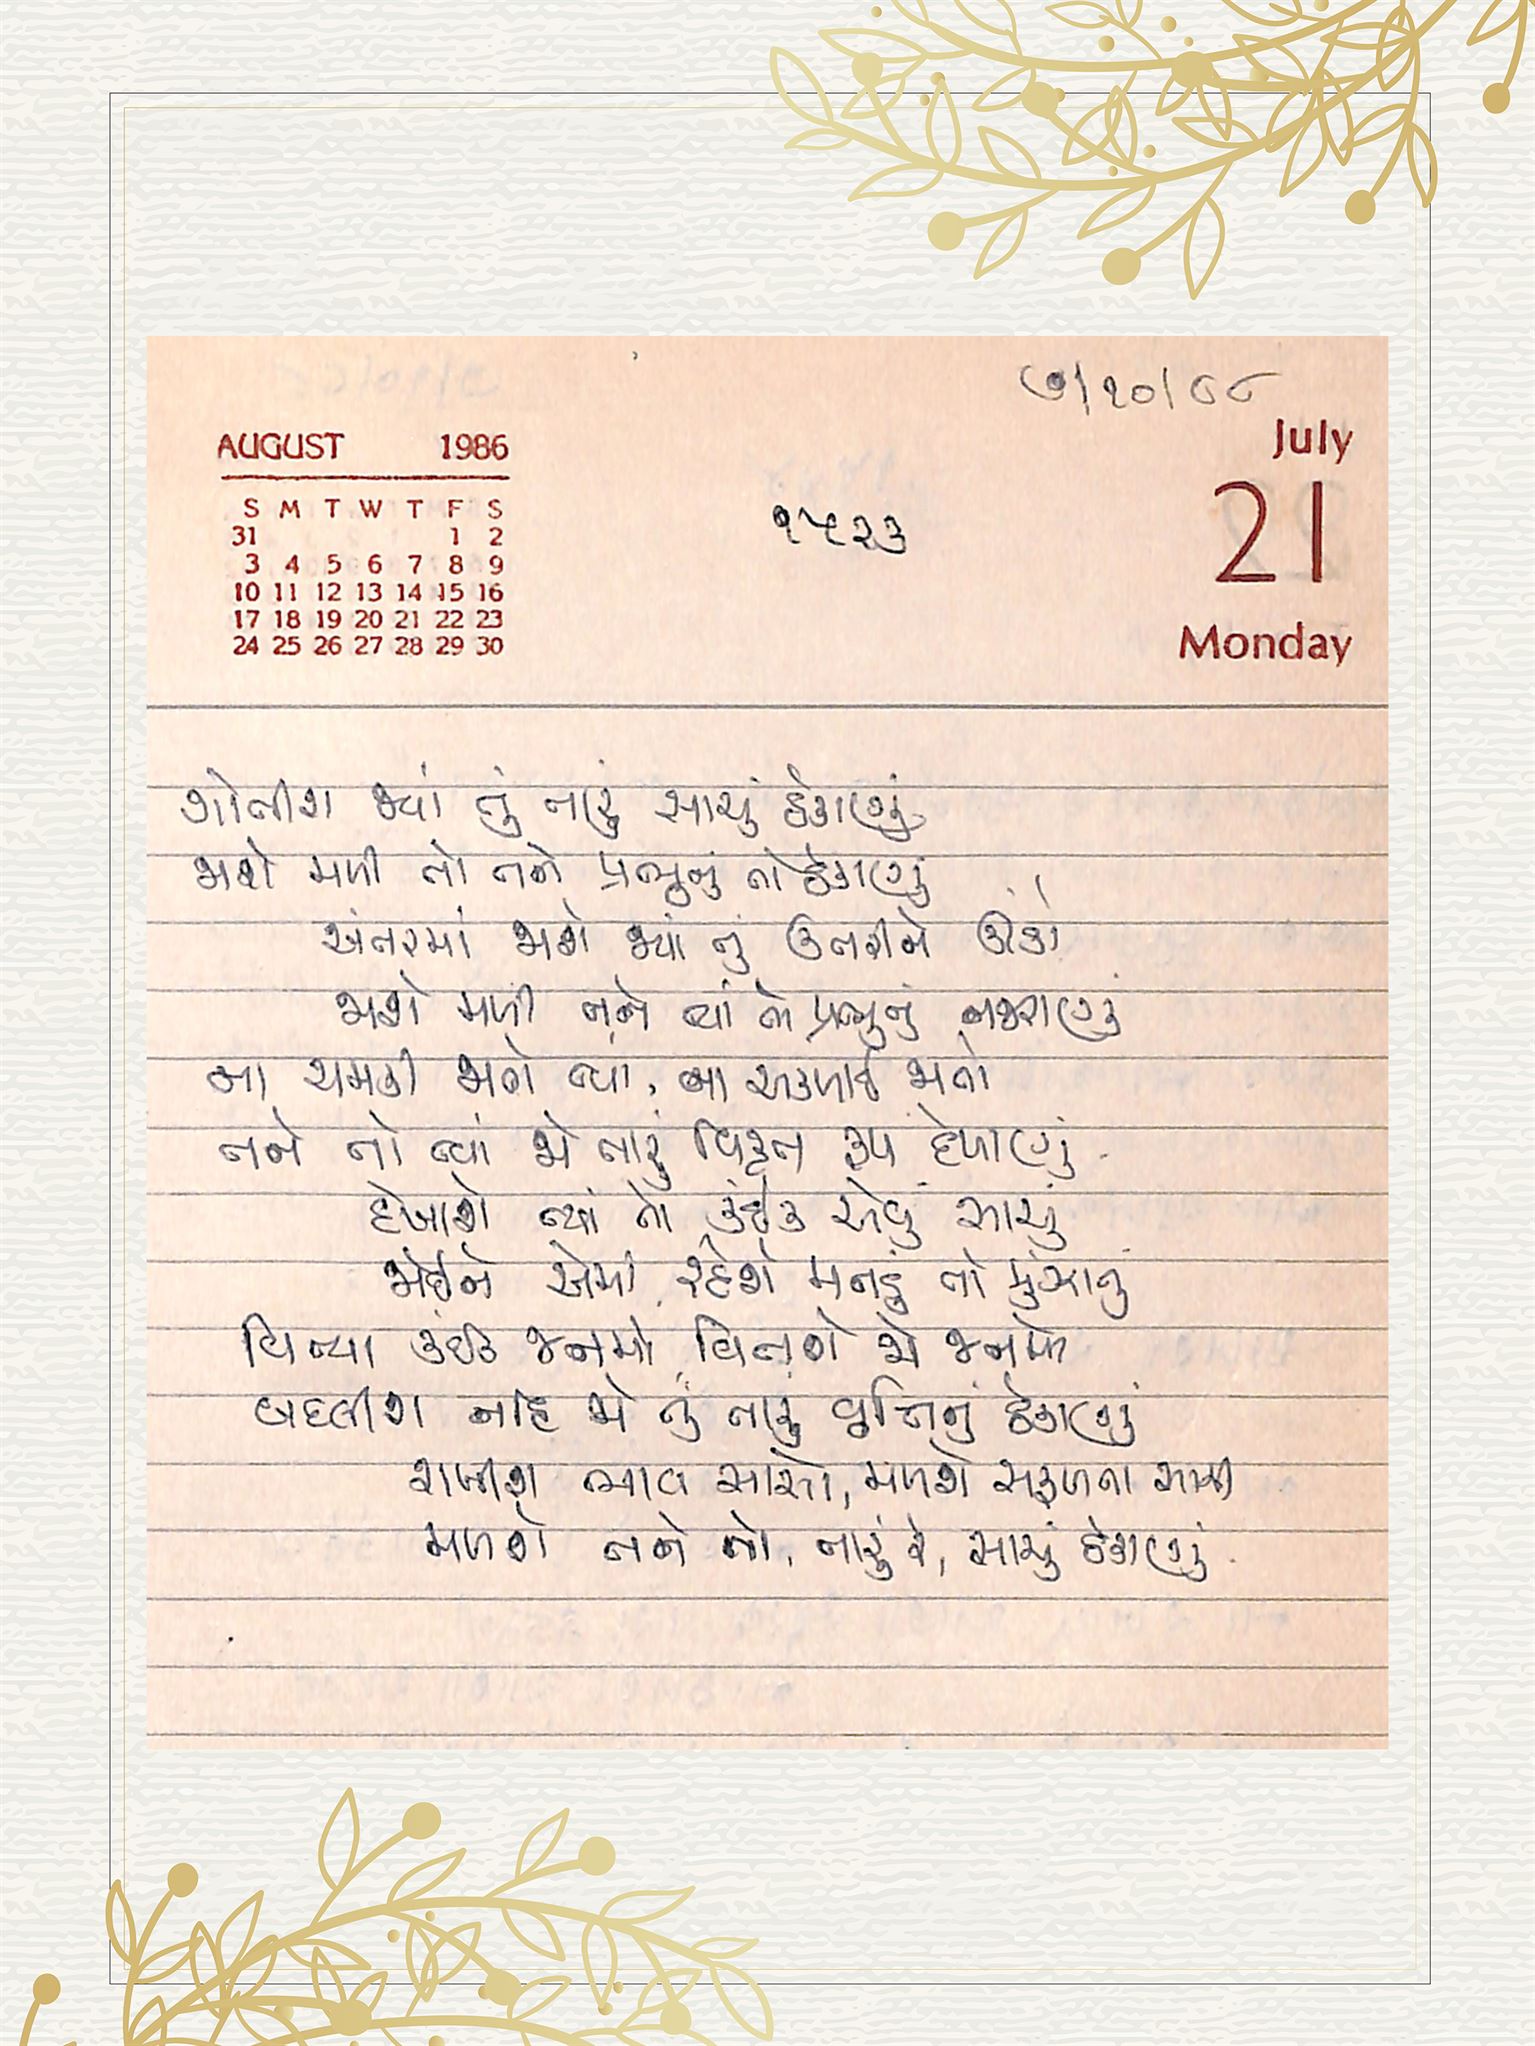 ૭/૧૦/૮૮
AUGUST 1986
S M T W T F S
31 1 2
3 4 5 6 7 8 9
10 11 12 13 14 15 16
17 18 19 20 21 22 23
24 25 26 27 28 29 30
૧૫૨૩
July
21
Monday
ગોતીશ જ્યાં તું તારું સાચું ઠેકાણું
જાશે મળી તો તને પ્રભુનું તો ઠેકાણું
અંતરમાં જાશે જ્યાં તું ઉતરીને ઊંડો
જાશે મળી તને ત્યાં તો પ્રભુનું નજરાણું
ના ચમકી જાતો ત્યાં, ના અકળાઈ જાતો
તને તો ત્યાં જો તારું વિકૃત રૂપ દેખાણું
દેખાશે ત્યાં તો કંઈક એવું સાચું
જોઈને એમાં રહેશે મનડું તો મુંઝાતું
વિત્યા કંઈક જનમો, વિતશે જો જનમો
બદલીશ નહિ જો તું તારું વૃત્તિનું ઠેકાણું
રાખીશ ભાવ સાચો, મળશે સફળતા સાચી
મળશે તને તો, તારું રે, સાચું ઠેકાણું